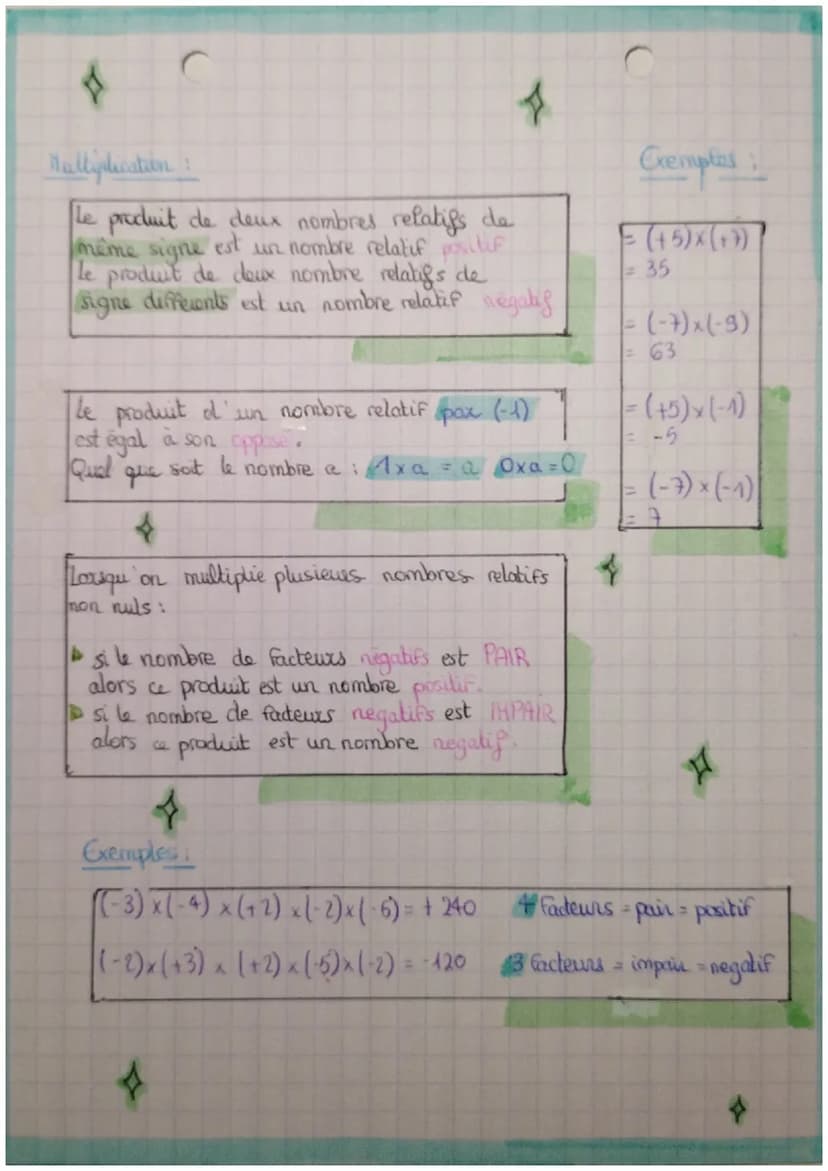 Multiplication :
Le produit de deux nombres relatifs de
même signe est un nombre relatif positif
Le produit de deux nombre relatifs de
signe differents est un nombre relatif négatif
Le produit d'un nombre relatif par (-1)
est égal à son opposé.
Quel que soit le nombre a : 1xa = a 0xa=0
Lorsqu'on multiplie plusieurs nombres relatifs
non nuls :
si le nombre de facteurs négatifs est PAIR
alors ce produit est un nombre positif.
si le nombre de facteurs negatifs est IMPAIR
alors ce produit est un nombre negatif.
Exemples :
= (+5)x(+7)
= 35
= (-7)x(-9)
= 63
= (+5)x(-1)
= -5
= (-7)x(-1)
= 7
Exemples :
(-3)x(-4)x(+2)x(-2)x(-6)= + 240 4 facteurs = pair = positif
(-2)x(+3)x(+2)x(-5)x(-2) = -120 3 facteurs = impair = negatif